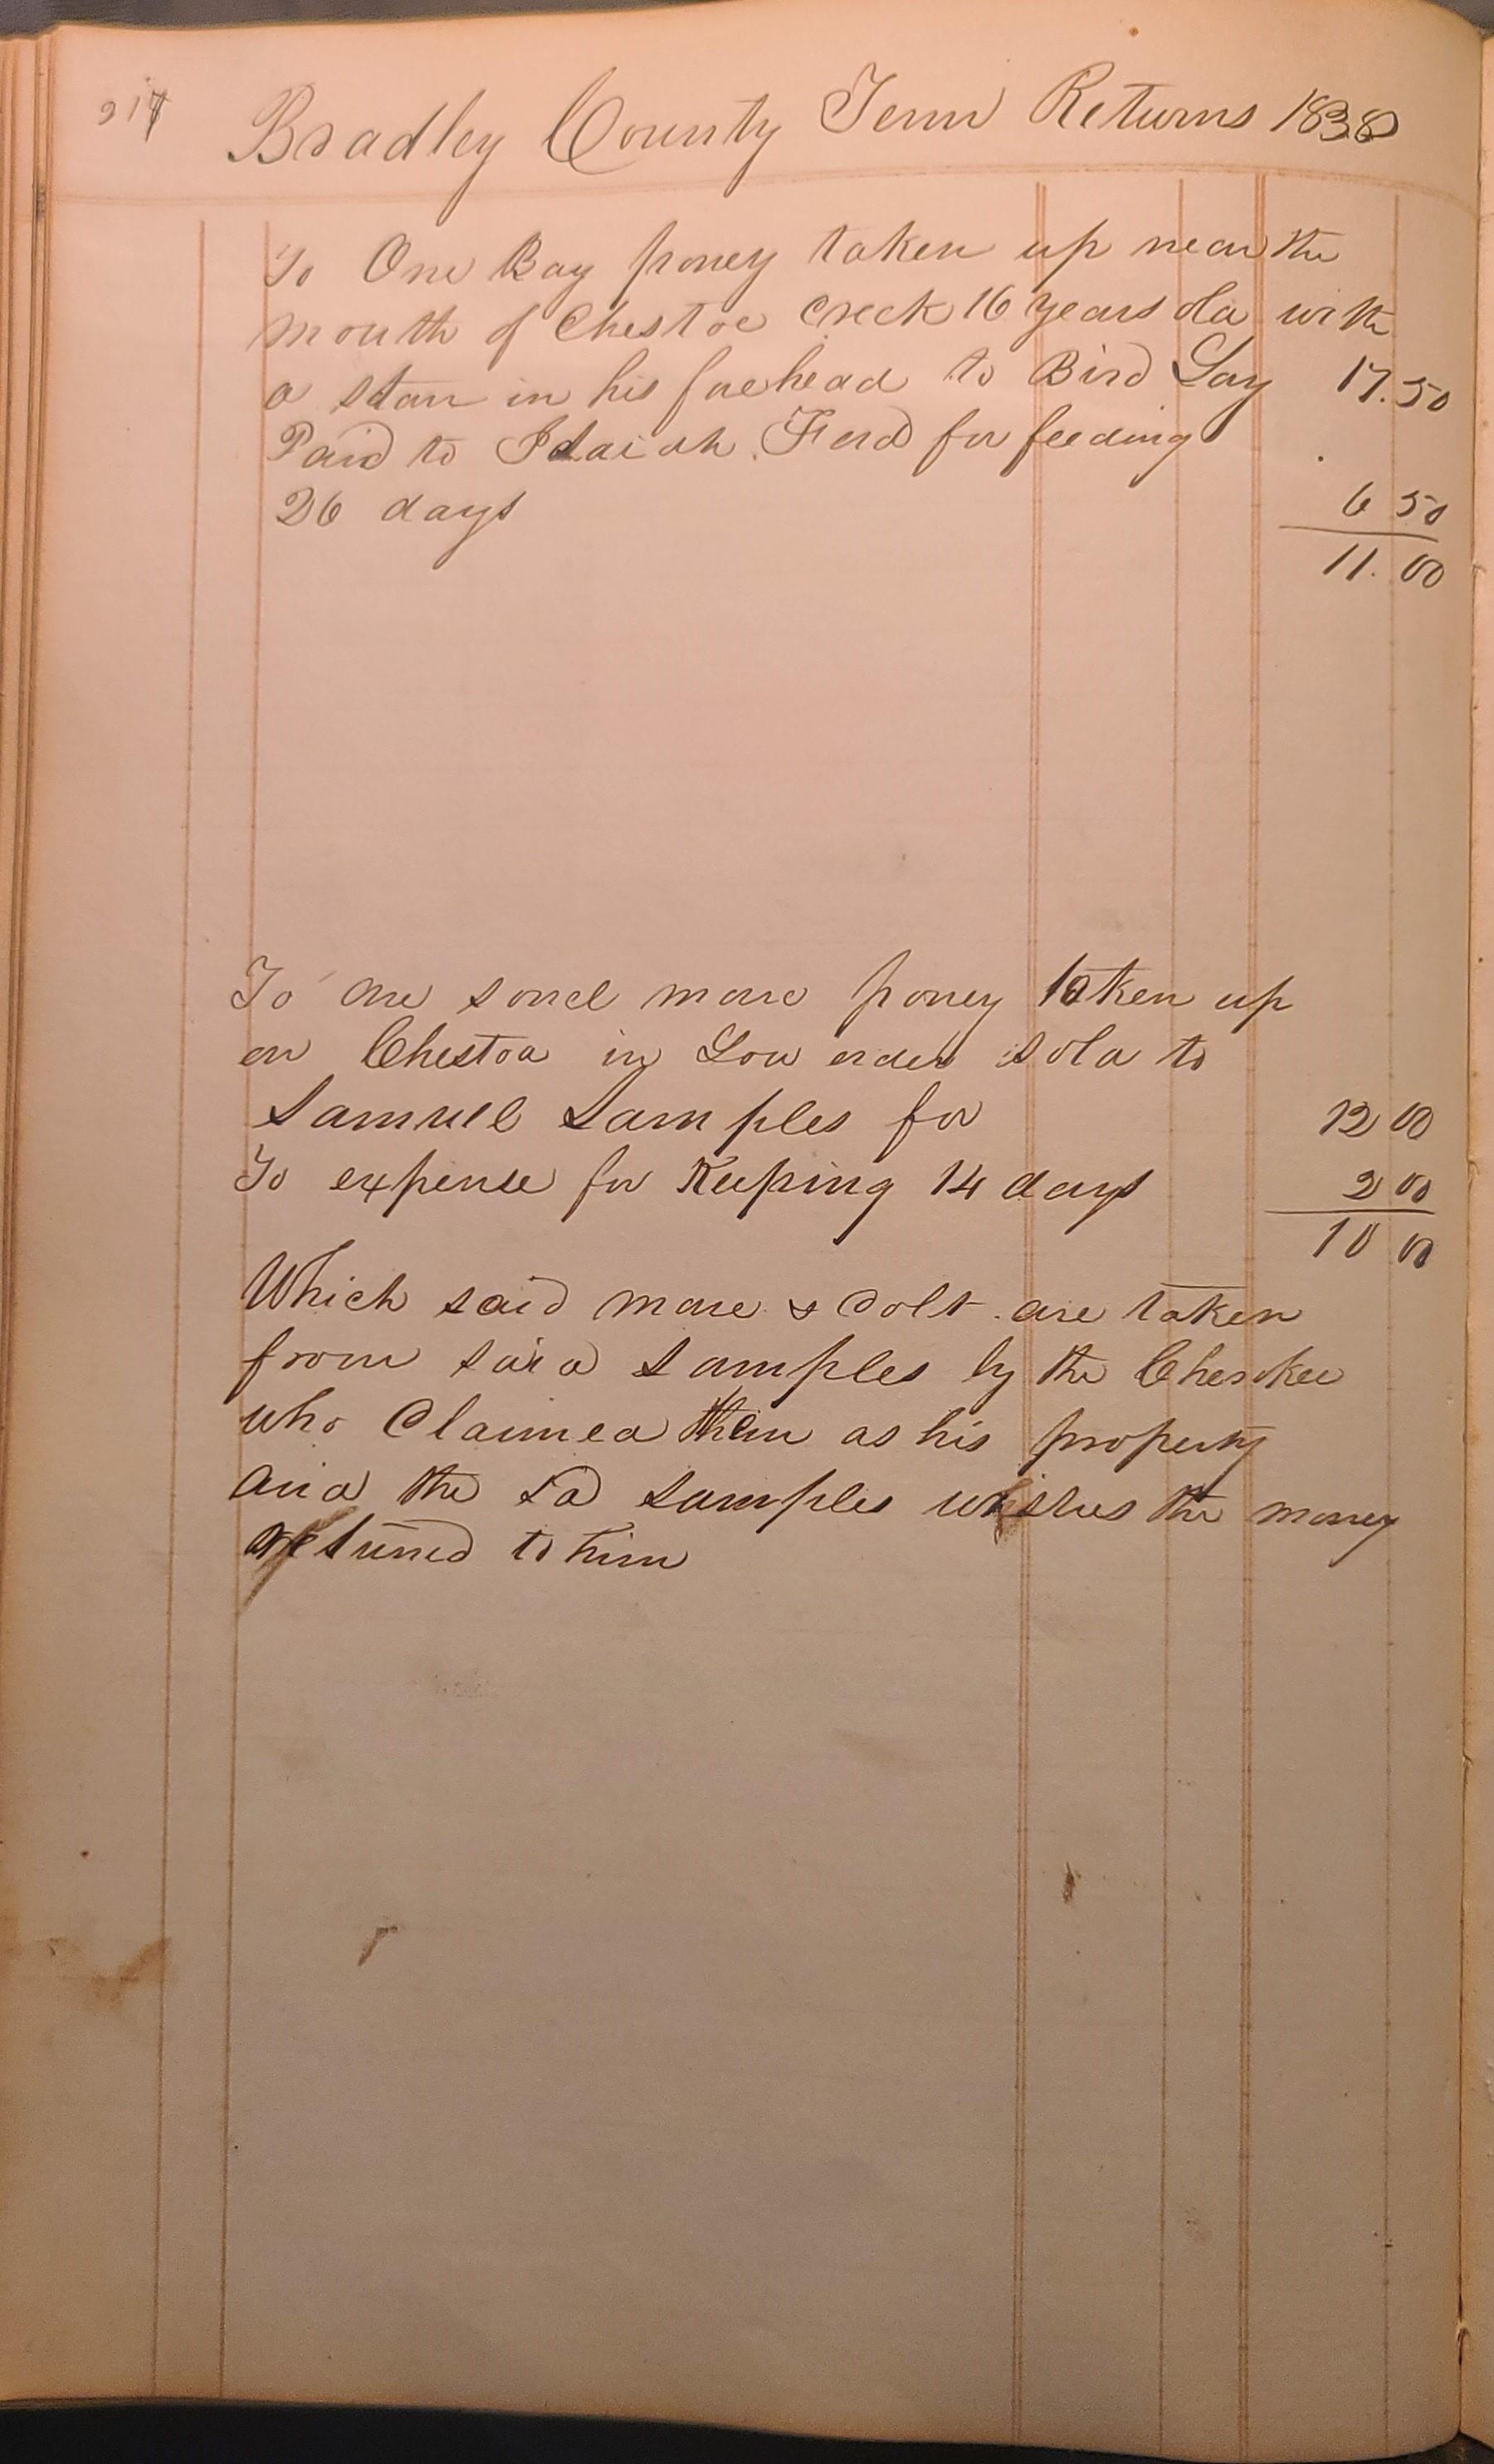 217
Bradley County Tenn Returns 1838
To One Bay poney taken up near the
mouth of Chestoe Creek 16 years old with
a star in his forehead to Bird Lay 17.50
Paid to Isaiah Ford for feeding
26 days 6 50
11.00
To one sorrel mare poney taken up
on Chestoa in Low order sold to
Samuel Samples for 12 00
To expense for Keeping 14 days 2 00
10 00
Which said mare & Colt are taken
from said Samples by the Cherokee
who Claimed them as his property
and the sd Samples wishes the money
returned to him